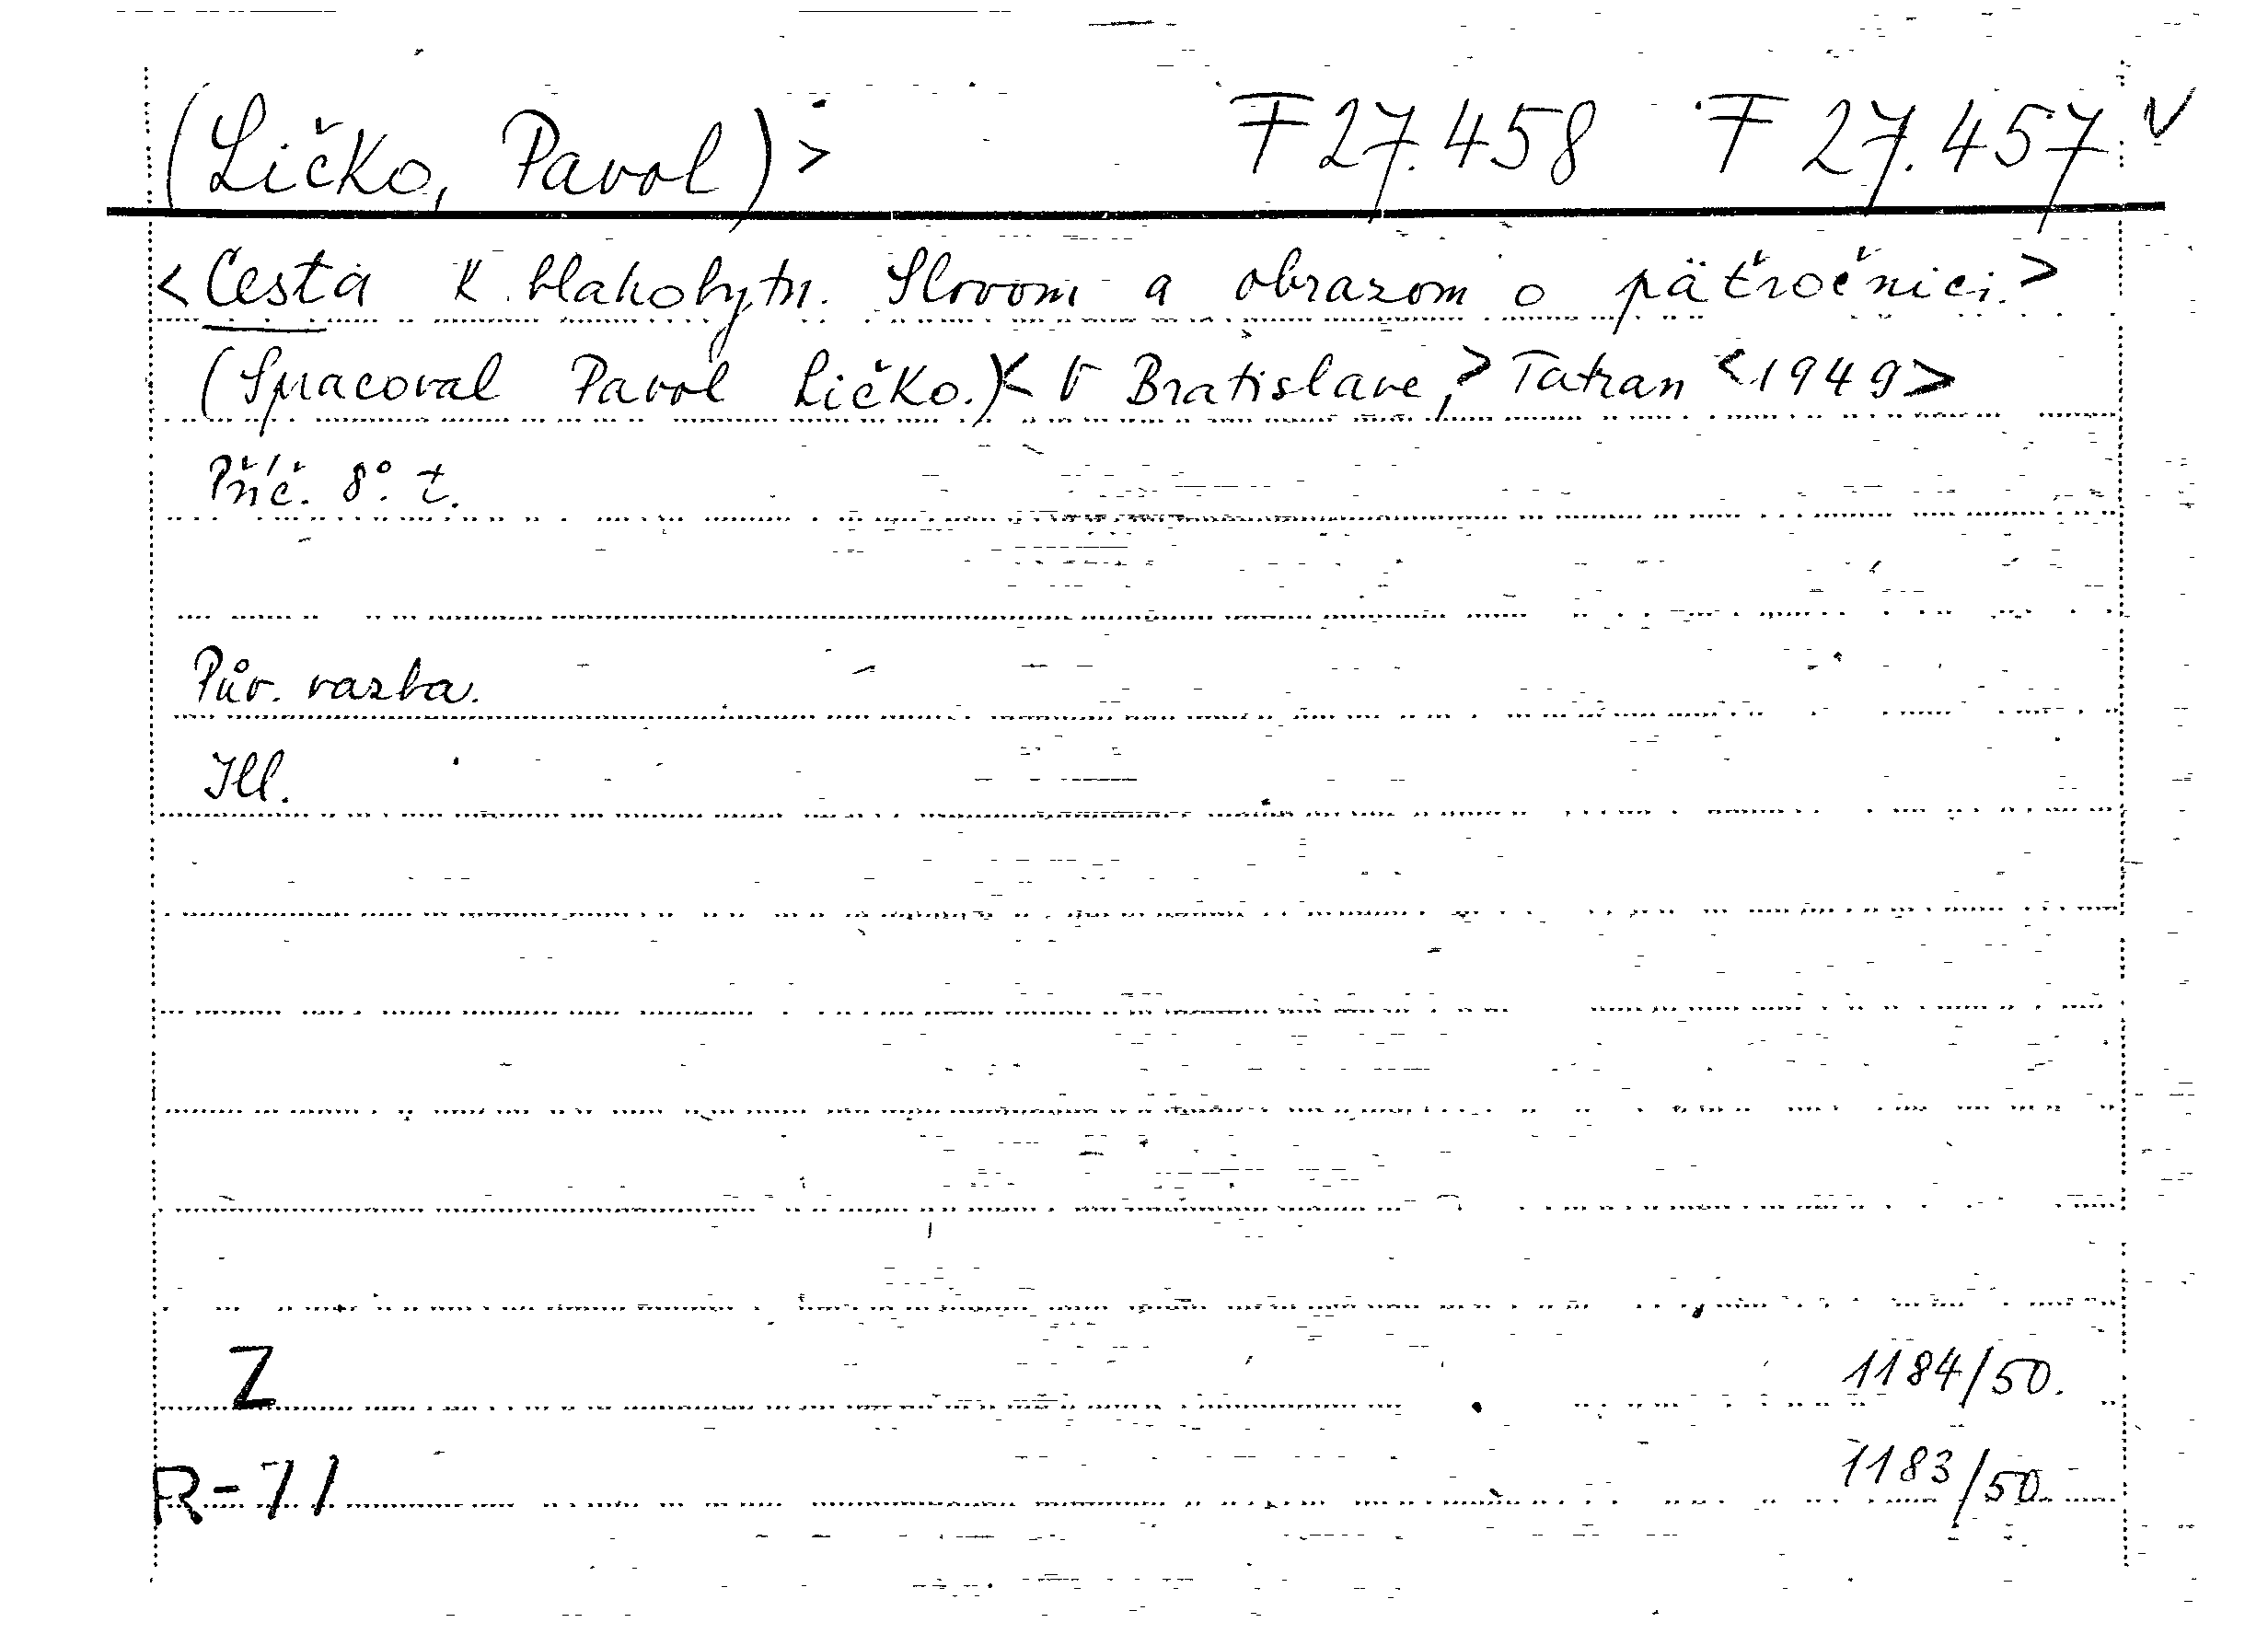 (Ličko, Pavol) > F 27.458 F 27.457 v
< Cesta k blahobytu. Slovom a obrazom o päťročnici. >
(Spracoval Pavol Ličko.) < V Bratislave, > Tatran < 1949 >
Příč. 8°. t.
Pův. vazba.
Ill.
Z 1184/50.
R-71 1183/50